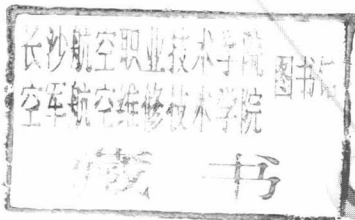 长沙航空职业技术学院
空军航空维修技术学院
图书馆
藏 书